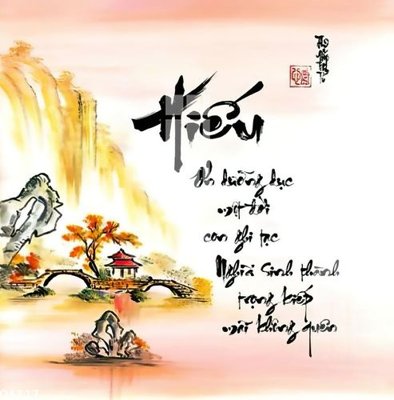 Hiếu
Ơn dưỡng dục
một đời
con ghi tạc
Nghĩa sinh thành
trọng kiếp
mãi không quên